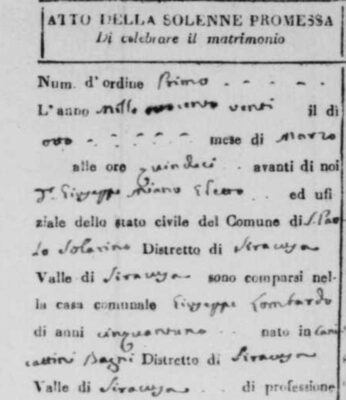 ATTO DELLA SOLENNE PROMESSA
Di celebrare il matrimonio
Num. d'ordine Primo
L'anno mille ottocento venti il dì
otto mese di Marzo
alle ore quindeci avanti di noi
Giuseppe Miano Eletto ed ufi
ziale dello stato civile del Comune di S. Pao
lo Solarino Distretto di Siracusa
Valle di Siracusa sono comparsi nel-
la casa comunale Giuseppe Lombardo
di anni cinquantuno nato in Cani
cattini Bagni Distretto di Siracusa
Valle di Siracusa di professione